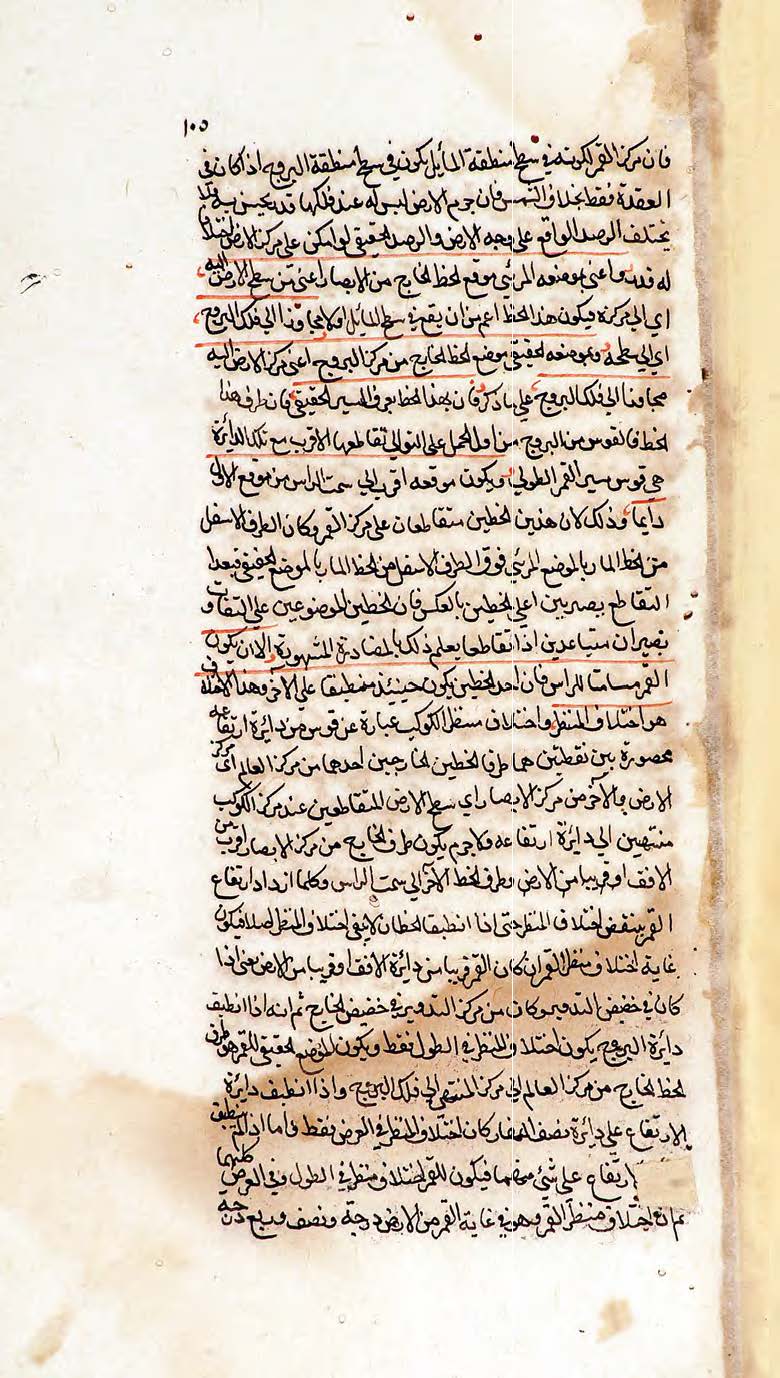 ١٠٥
فان مركز القمر لكونه في سطح منطقة المايل يكون في سطح منطقة البروج اذا كان في
العقدة فقط بخلاف الشمس فان جرم الارض ليس له عند فلكها قدر يحس به ولا
يختلف الرصد الواقع على وجه الارض والرصد الحقيقي لو امكن على مركز الارض اختلافا
له قدر واعنى بموضعه المرئي موقع الخط الخارج من الابصار اعني من سطح الارض اليه
اي الى مركزه فيكون هذا الخط اعم من ان يقع في سطح المايل اولا مجاوزا الى فلك البروج
اي الى سطحه وبموضعه الحقيقي موضع الخط الخارج من مركز البروج اعني مركز الارض اليه
مجاوزا الى فلك البروج على ما ذكر فان بهذا الخط يعرف المسير الحقيقي فان طرف هذا
الخط فالقوس من البروج من اول الحمل على التوالي تقاطعها الاقرب مع تلك الدائرة
هي قوس مسير القمر الطولي ويكون موقعه اقرب الى سمت الراس من موقع الاول
دايما وذلك لان هذين الخطين متقاطعان على مركز القمر وكان الطرف الاسفل
من الخط المار بالموضع المرئي فوق الطرف الاسفل من الخط المار بالموضع الحقيقي فبعد
التقاطع يصير بين اعلى الخطين بالعكس فان الخطين الموضوعين على التقارب
يصيران متباعدين اذا تقاطعا يعلم ذلك بالمصادرة المشهورة الا ان يكون
القمر مسامتا للراس فان احد الخطين يكون حينئذ منطبقا على الآخر وهذا الاختلاف
هو اختلاف المنظر واختلاف منظر الكوكب عبارة عن قوس من دائرة ارتفاعه
محصورة بين نقطتين هما طرفا الخطين الخارجين احدهما من مركز العالم اي مركز
الارض والآخر من مركز الابصار اي سطح الارض المتقاطعين عند مركز الكوكب
منتهيين الى دائرة ارتفاعه ولا جرم يكون طرف الخارج من مركز الابصار اقرب من
الافق او قريبا من الارض وطرف الخط الآخر الى سمت الراس وكلما ازداد ارتفاع
القمر ينقص اختلاف المنظر حتى اذا انطبقا الخطان لا يبقى اختلاف المنظر اصلا فيكون
غاية اختلاف منظر القمر ان كان القمر قريبا من دائرة الافق او قريبا من الارض يعني اذا
كان في حضيض التدوير وكان من مركز التدوير في حضيض الخارج ثم انه اذا انطبق
دايرة البروج يكون اختلاف المنظر في الطول فقط ويكون الموضع الحقيقي للقمر هو طرف
الخط الخارج من مركز العالم الى مركز المنتهي الى فلك البروج واذا انطبق دايرة
الارتفاع على دايرة نصف النهار كان اختلاف المنظر في العرض فقط واما اذا لم ينطبق
ارتفاع على شئ منهما فيكون للقمر اختلاف منظر في الطول وفي العرض كليهما
اختلاف منظر القمر وهو في غاية القمر من الارض درجة ونصف وربع درجة